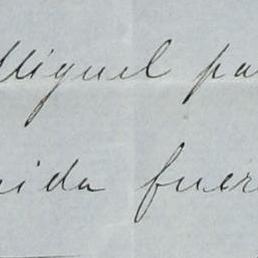 Miguel pa
ida fuer